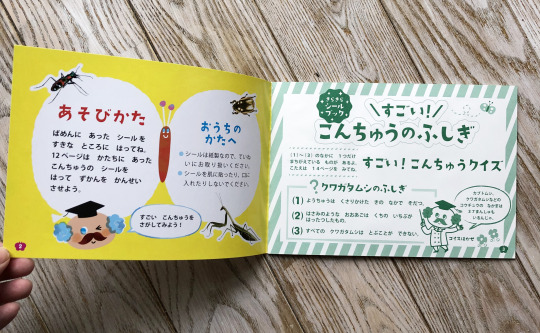 あそびかた
ばめんに あった シールを
すきな ところに はってね。
12ページは かたちに あった
こんちゅうの シールを
はって ずかんを かんせい
させよう。
おうちの
かたへ
●シールは紙製なので、ていね
いにお取り扱いください。
●シールを肌に貼ったり、口に
入れたりしないでください。
すごい こんちゅうを
さがしてみよう!
2
きらきら
シール
ブック
すごい!
こんちゅうのふしぎ
(1)~(3)のなかに 1つだけ
まちがえている ものが あるよ。
こたえは 14ページを みてね。
すごい!こんちゅうクイズ
?クワガタムシのふしぎ
(1) ようちゅうは くさりかけた きの なかで そだつ。
(2) はさみのような おおあごは くちの いちぶが
はったつしたもの。
(3) すべての クワガタムシは とぶことが できない。
カブトムシ、
クワガタムシなどの
コウチュウの なかまは
いるんじゃ。
クイズはかせ